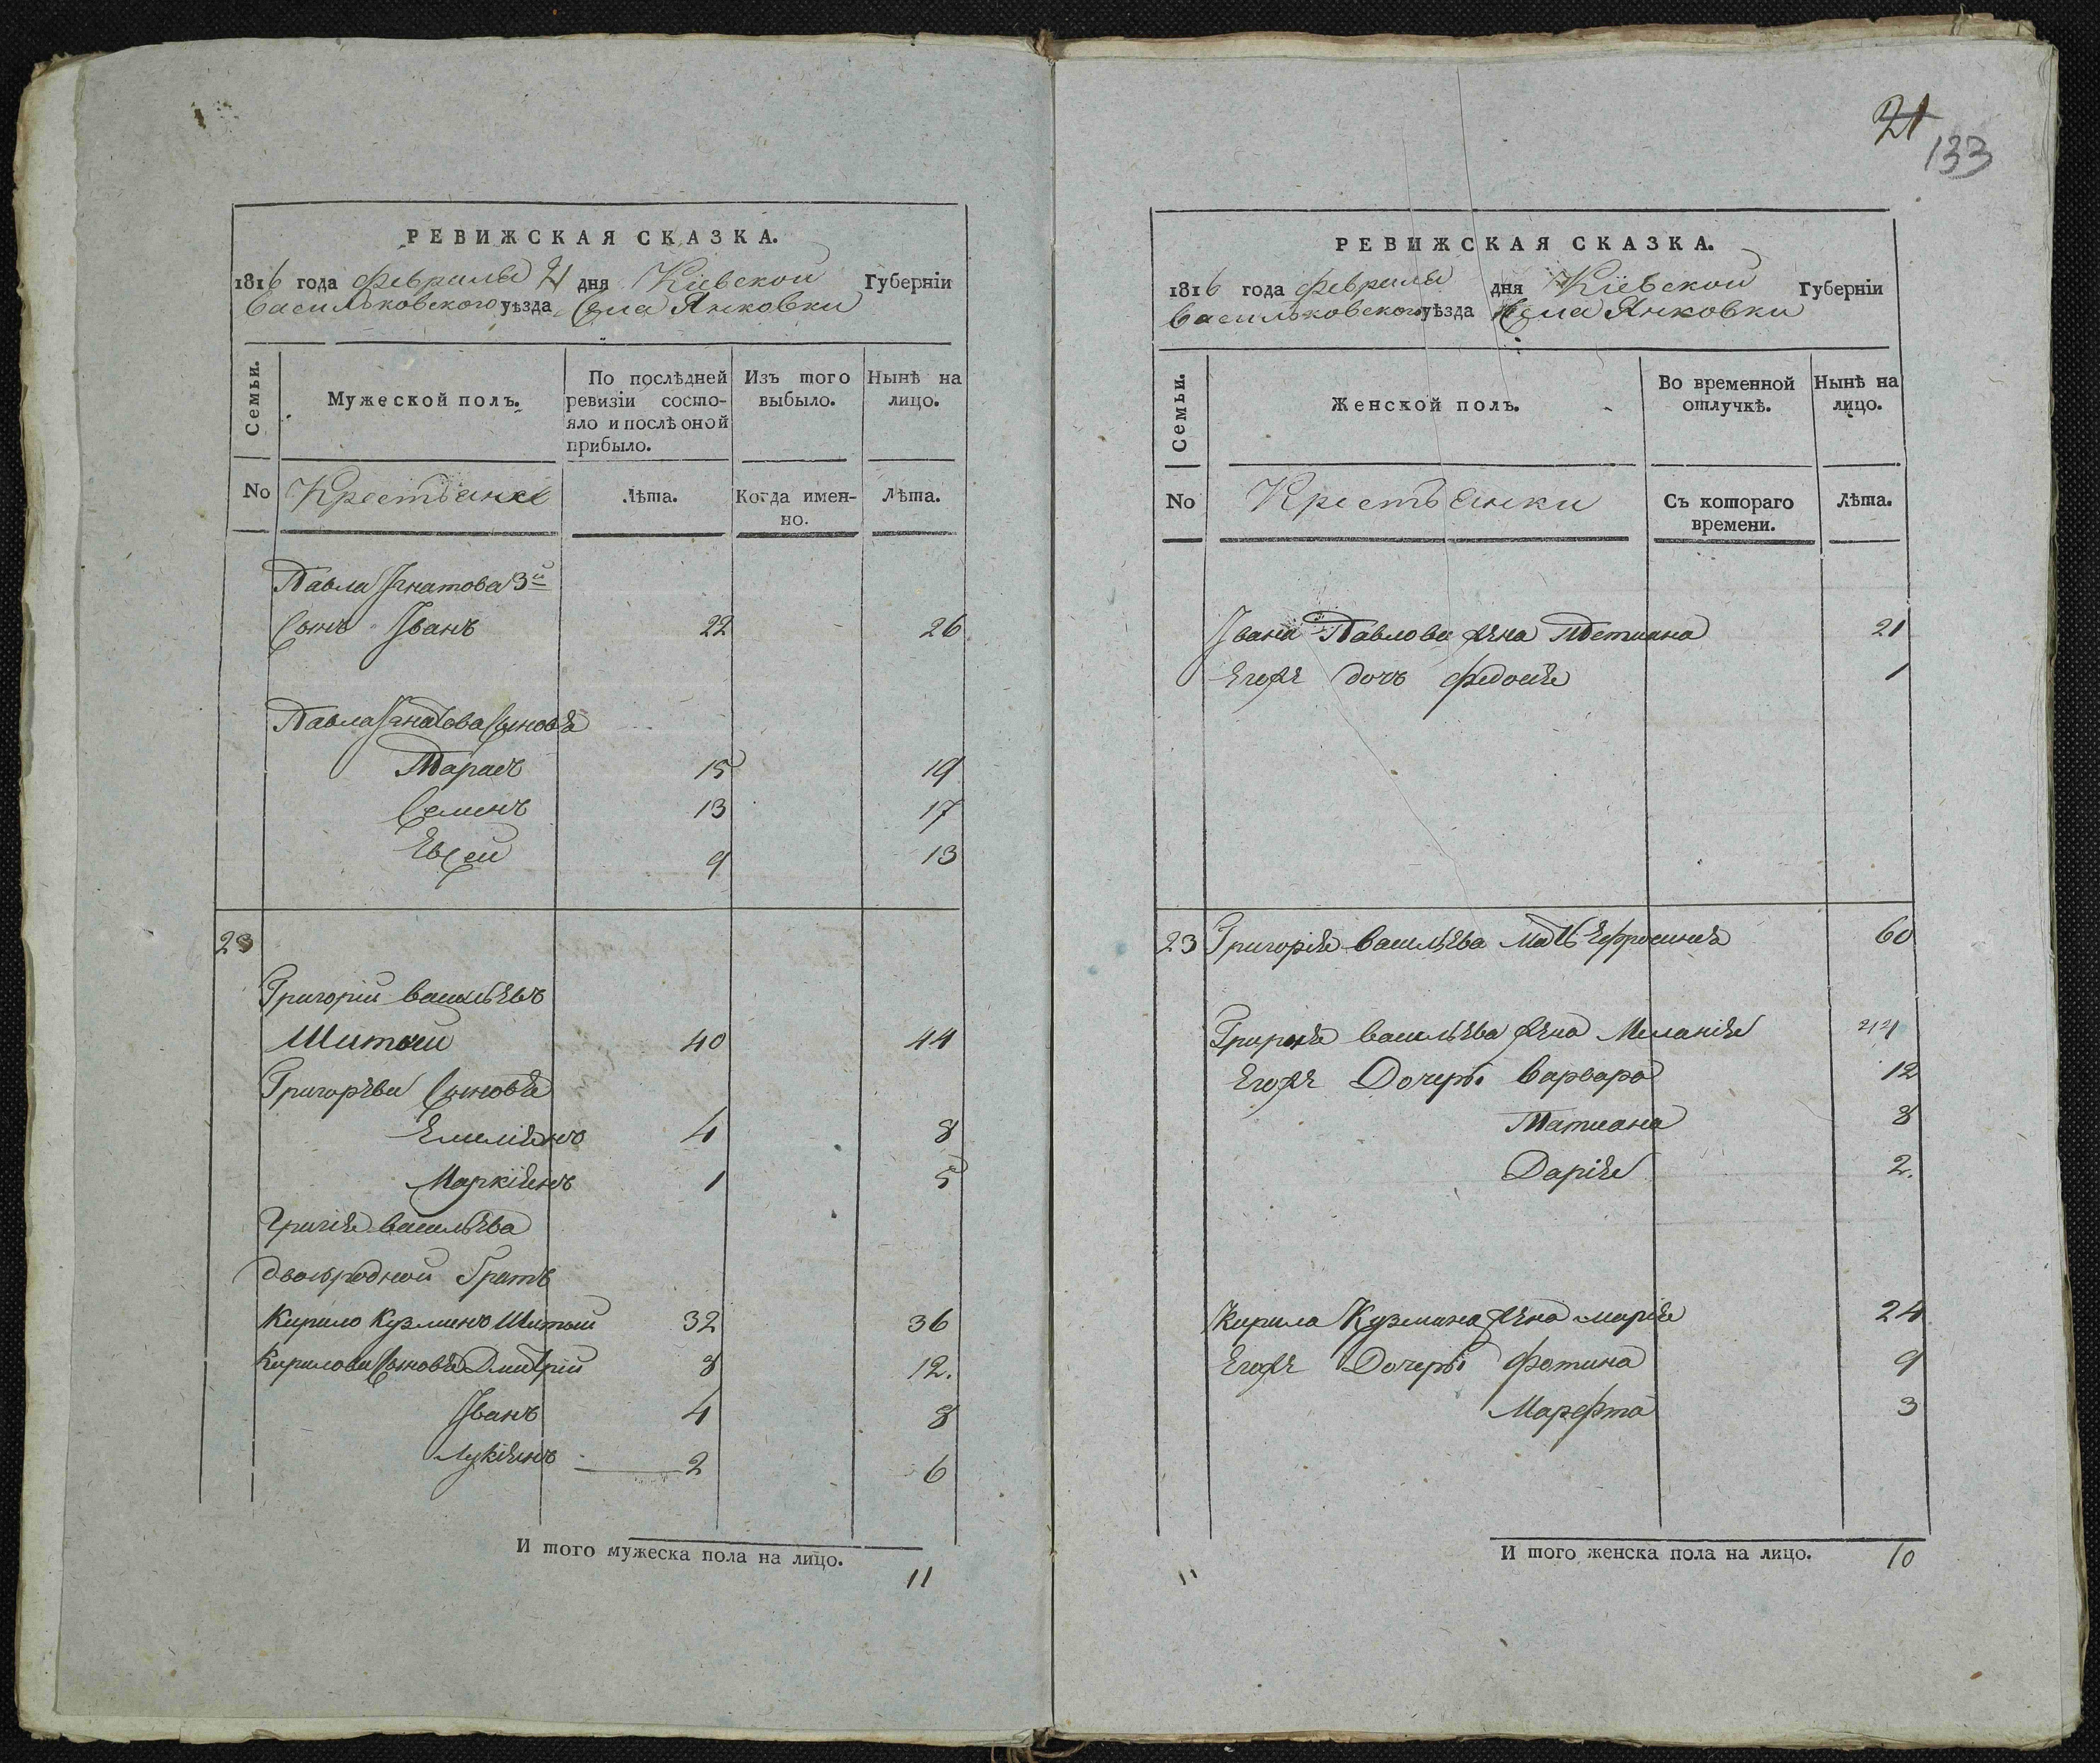 РЕВИЖСКАЯ СКАЗКА.
1816 года февраля 21 дня Кіевской Губерніи
Васильковского уѣзда Села Янковки
Семьи.
Мужеской полъ.
По послѣдней ревизіи состо-
яло и послѣ оной
прибыло.
Изъ того
выбыло.
Нынѣ на
лицо.
No
Крестьяне
Лѣта.
Когда имен-
но.
Лѣта.
Павла Игнатова 3й
Сынъ Иванъ 22 26
Павла Игнатова Сыновя
Тарасъ 15 19
Семенъ 13 17
Евсей 9 13
23
Григорій Васильевъ
Шитый 40 44
Григорева Сыновя
Емиліянъ 4 8
Маркіянъ 1 5
Васильева
двоюродной братъ
Кирило Кузминъ Шитый 32 36
Кирилови Сыновя Дмитрій 8 12.
Иванъ 4 8
Лукіянъ 2 6
И того мужеска пола на лицо.
11
21
133
РЕВИЖСКАЯ СКАЗКА.
1816 года февраля дня Кіевской Губерніи
Васильковского уѣзда Села Янковки
Семьи.
Женской полъ.
Во временной
отлучкѣ.
Нынѣ на
лицо.
No
Крестьянки
Съ котораго
времени.
Лѣта.
Ивана Павлова жена Тетиана 21
Егоже дочъ Федосія 1
23 Григорія Васильева Мать Ефросинія 60
Васильева жена Меланія
Егоже Дочеры Варвара 12
Татиана 8
Дарія 2.
Кирила Кузмина жена Марія 24
Егоже Дочеры Фотина 9
Марфта 3
И того женска пола на лицо. 10
11